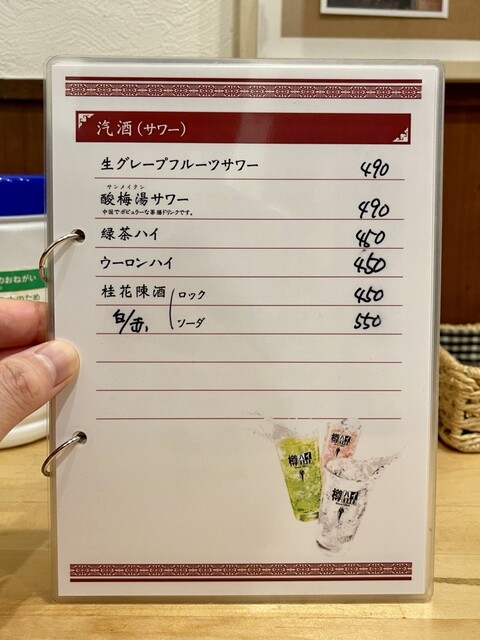 汽酒(サワー)
生グレープフルーツサワー 490
サンメイタン
酸梅湯サワー 490
中国でポピュラーな茶膳ドリンクです。
緑茶ハイ 450
ウーロンハイ 450
桂花陳酒 ロック 450
ソーダ 550
樽ハイ
樽ハイ
樽ハイ
のおねがい